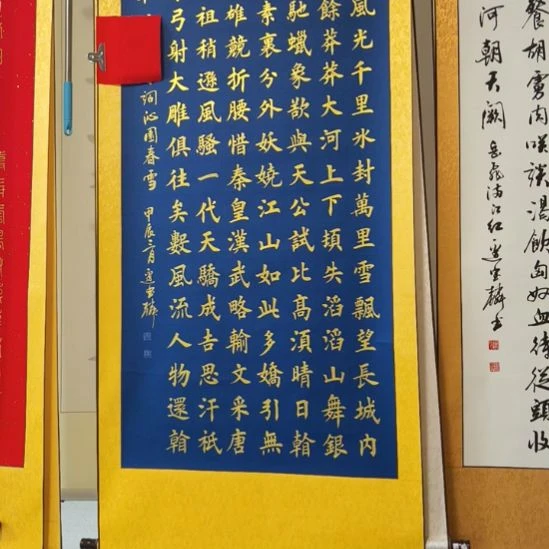 餐胡虜肉笑談渴飲匈奴血待從頭收
河朝天闕
岳飛滿江紅
風光千里冰封萬里雪飄望長城內
餘莽莽大河上下頓失滔滔山舞銀
馳蠟象欲與天公試比高須晴日看
素裹分外妖嬈江山如此多嬌引無
雄競折腰惜秦皇漢武略輸文采唐
祖稍遜風騷一代天驕成吉思汗祇
弓射大雕俱往矣數風流人物還看
詞沁園春雪 甲辰三月